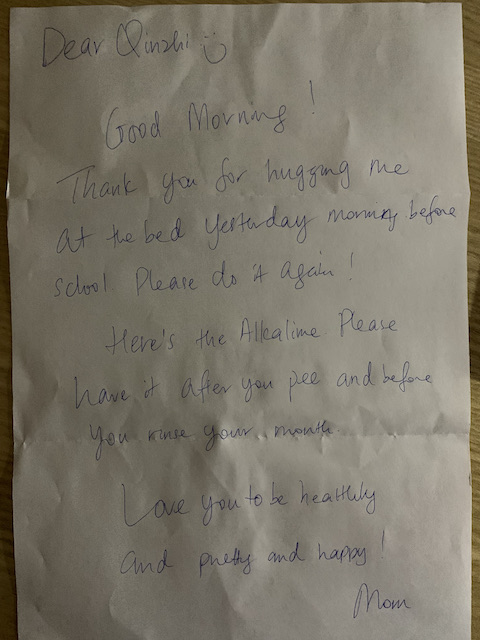 Dear Qinzhi
Good Morning!
Thank you for hugging me
at the bed yesterday morning before
school. Please do it again!
Here's the Alkaline Please
have it after you pee and before
you rinse your mouth.
Love you to be healthly
and pretty and happy!
Mom